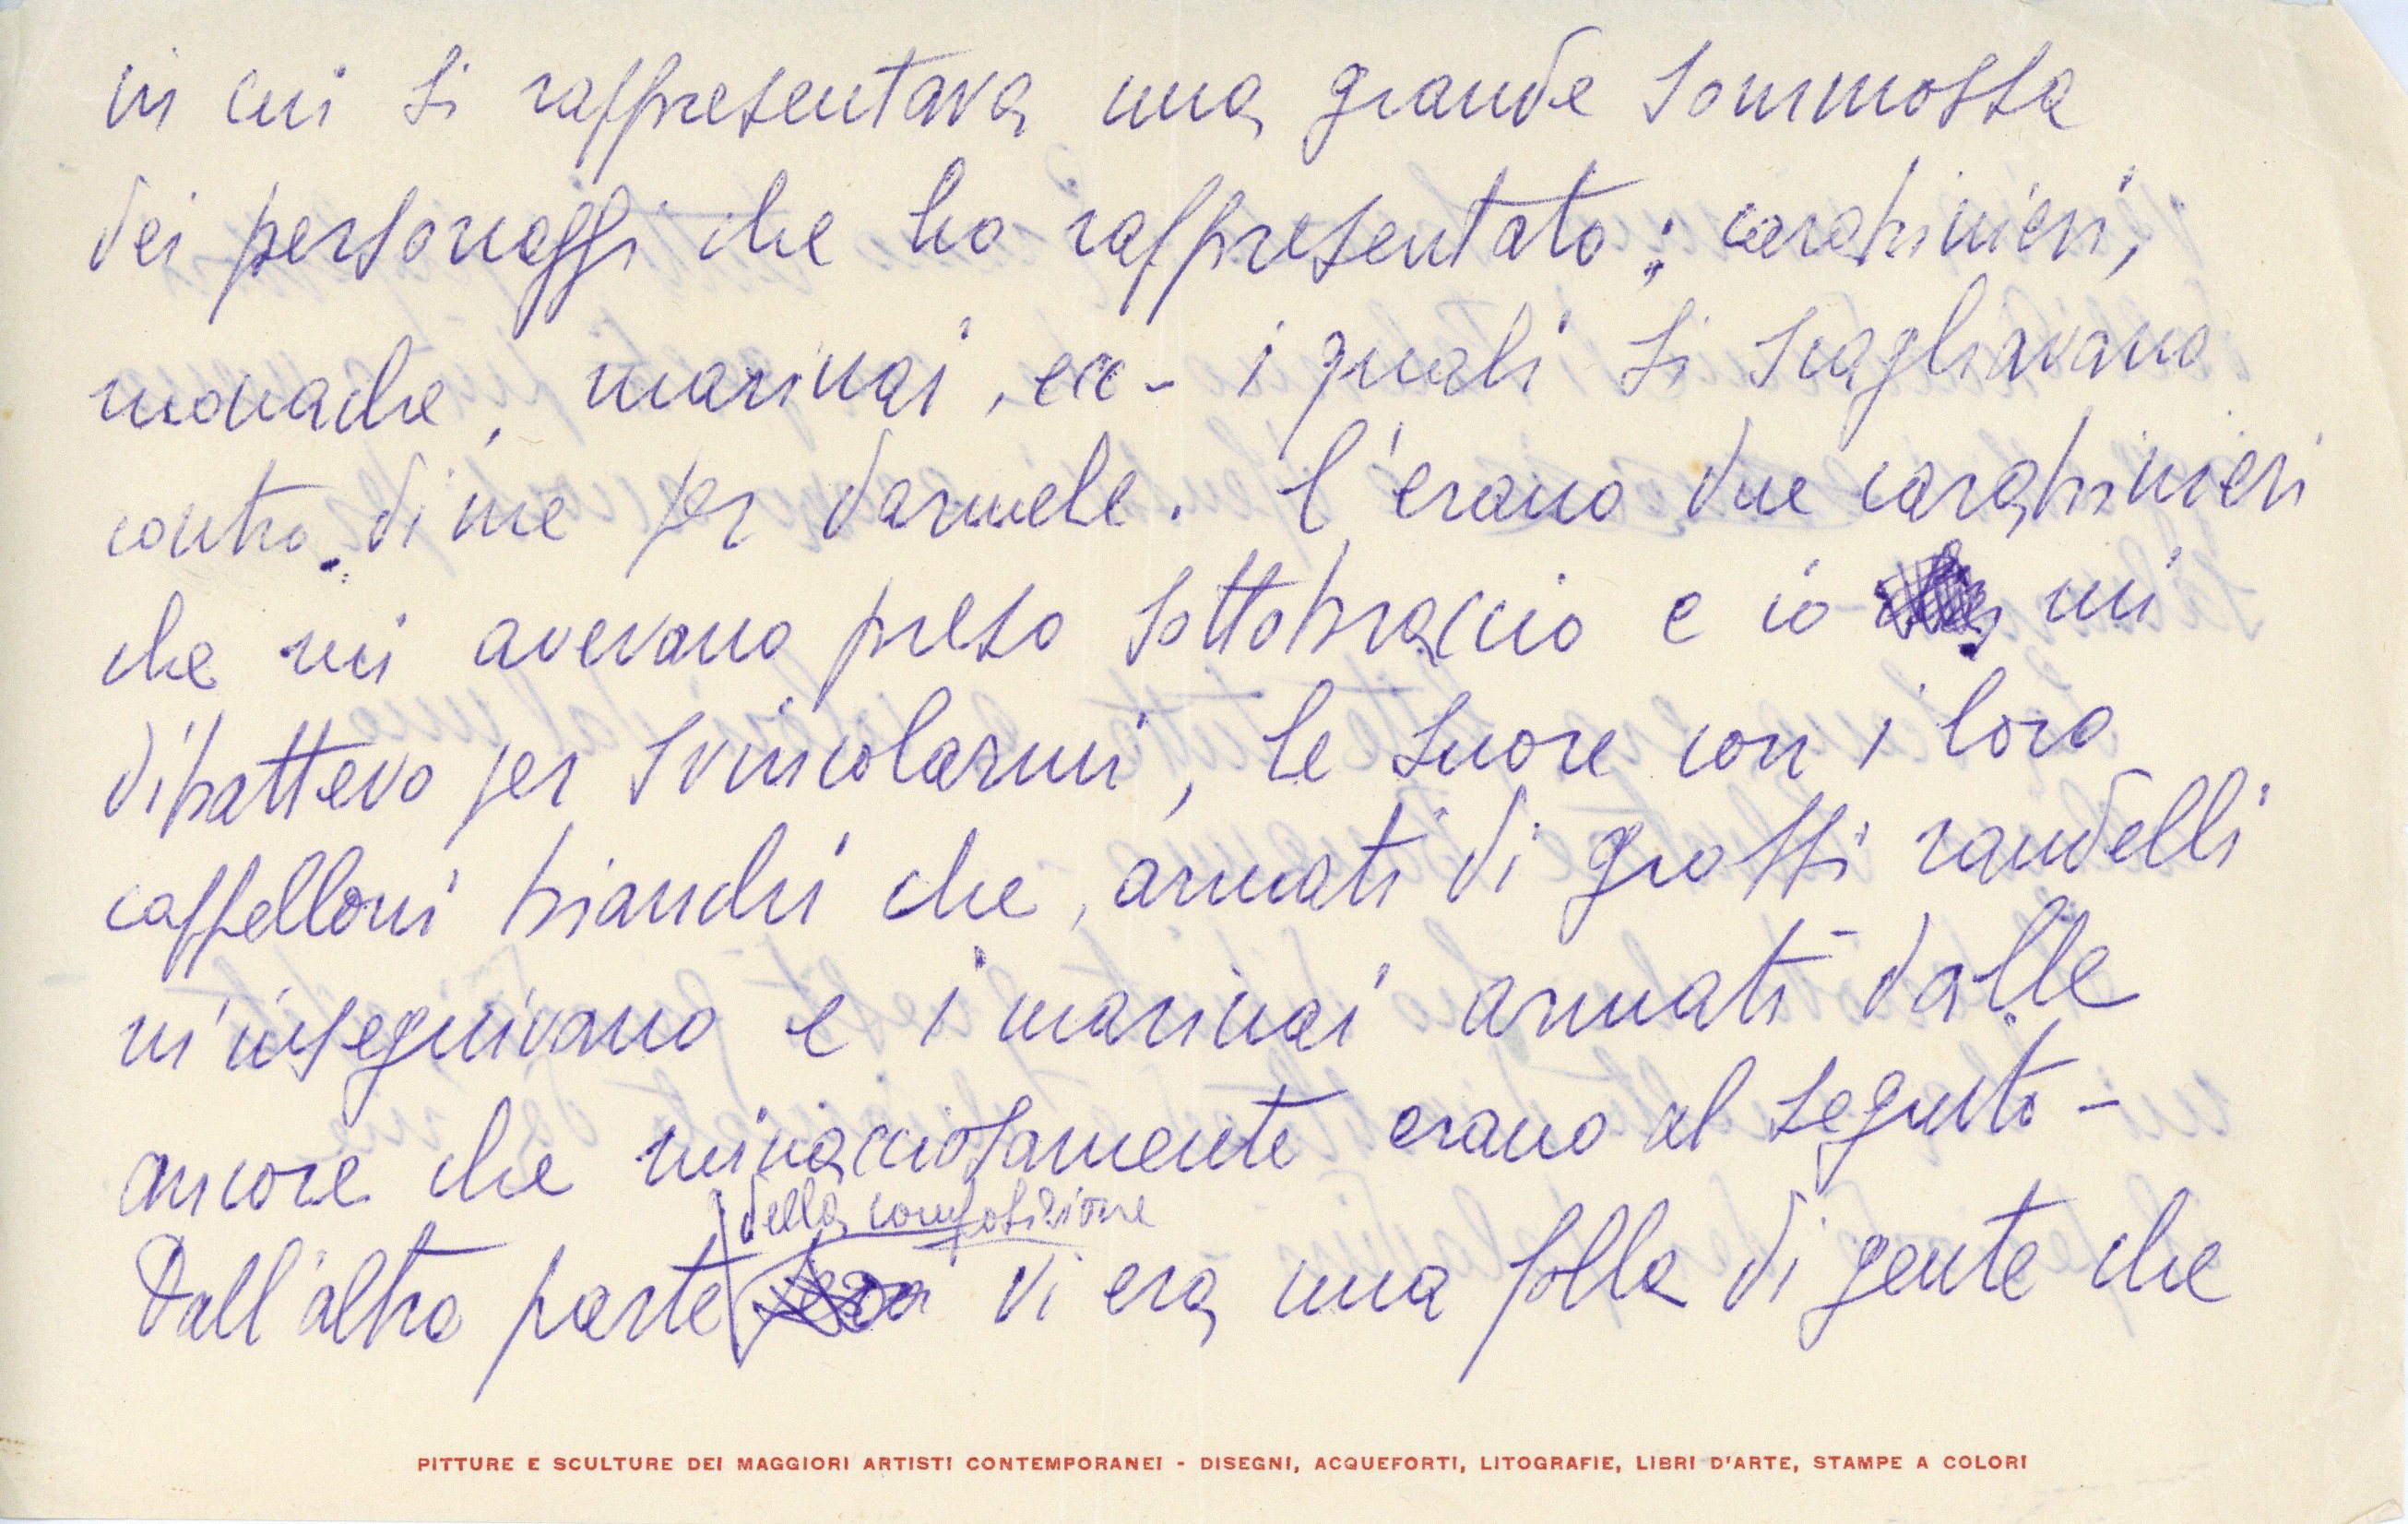 in cui si rappresentava una grande sommossa
dei personaggi che ho rappresentato: carabinieri,
monache, marinai, ecc- i quali si scagliavano
contro di me per darmele. C'erano due carabinieri
che mi avevano preso sottobraccio e io mi
dibattevo per svincolarmi, le suore con i loro
cappelloni bianchi che, armati di grossi randelli
m'inseguivano e i marinai armati dalle
ancore che minacciosamente erano al seguito-
della composizione
Dall'altra parte vi era una folla di gente che
PITTURE E SCULTURE DEI MAGGIORI ARTISTI CONTEMPORANEI - DISEGNI, ACQUEFORTI, LITOGRAFIE, LIBRI D'ARTE, STAMPE A COLORI